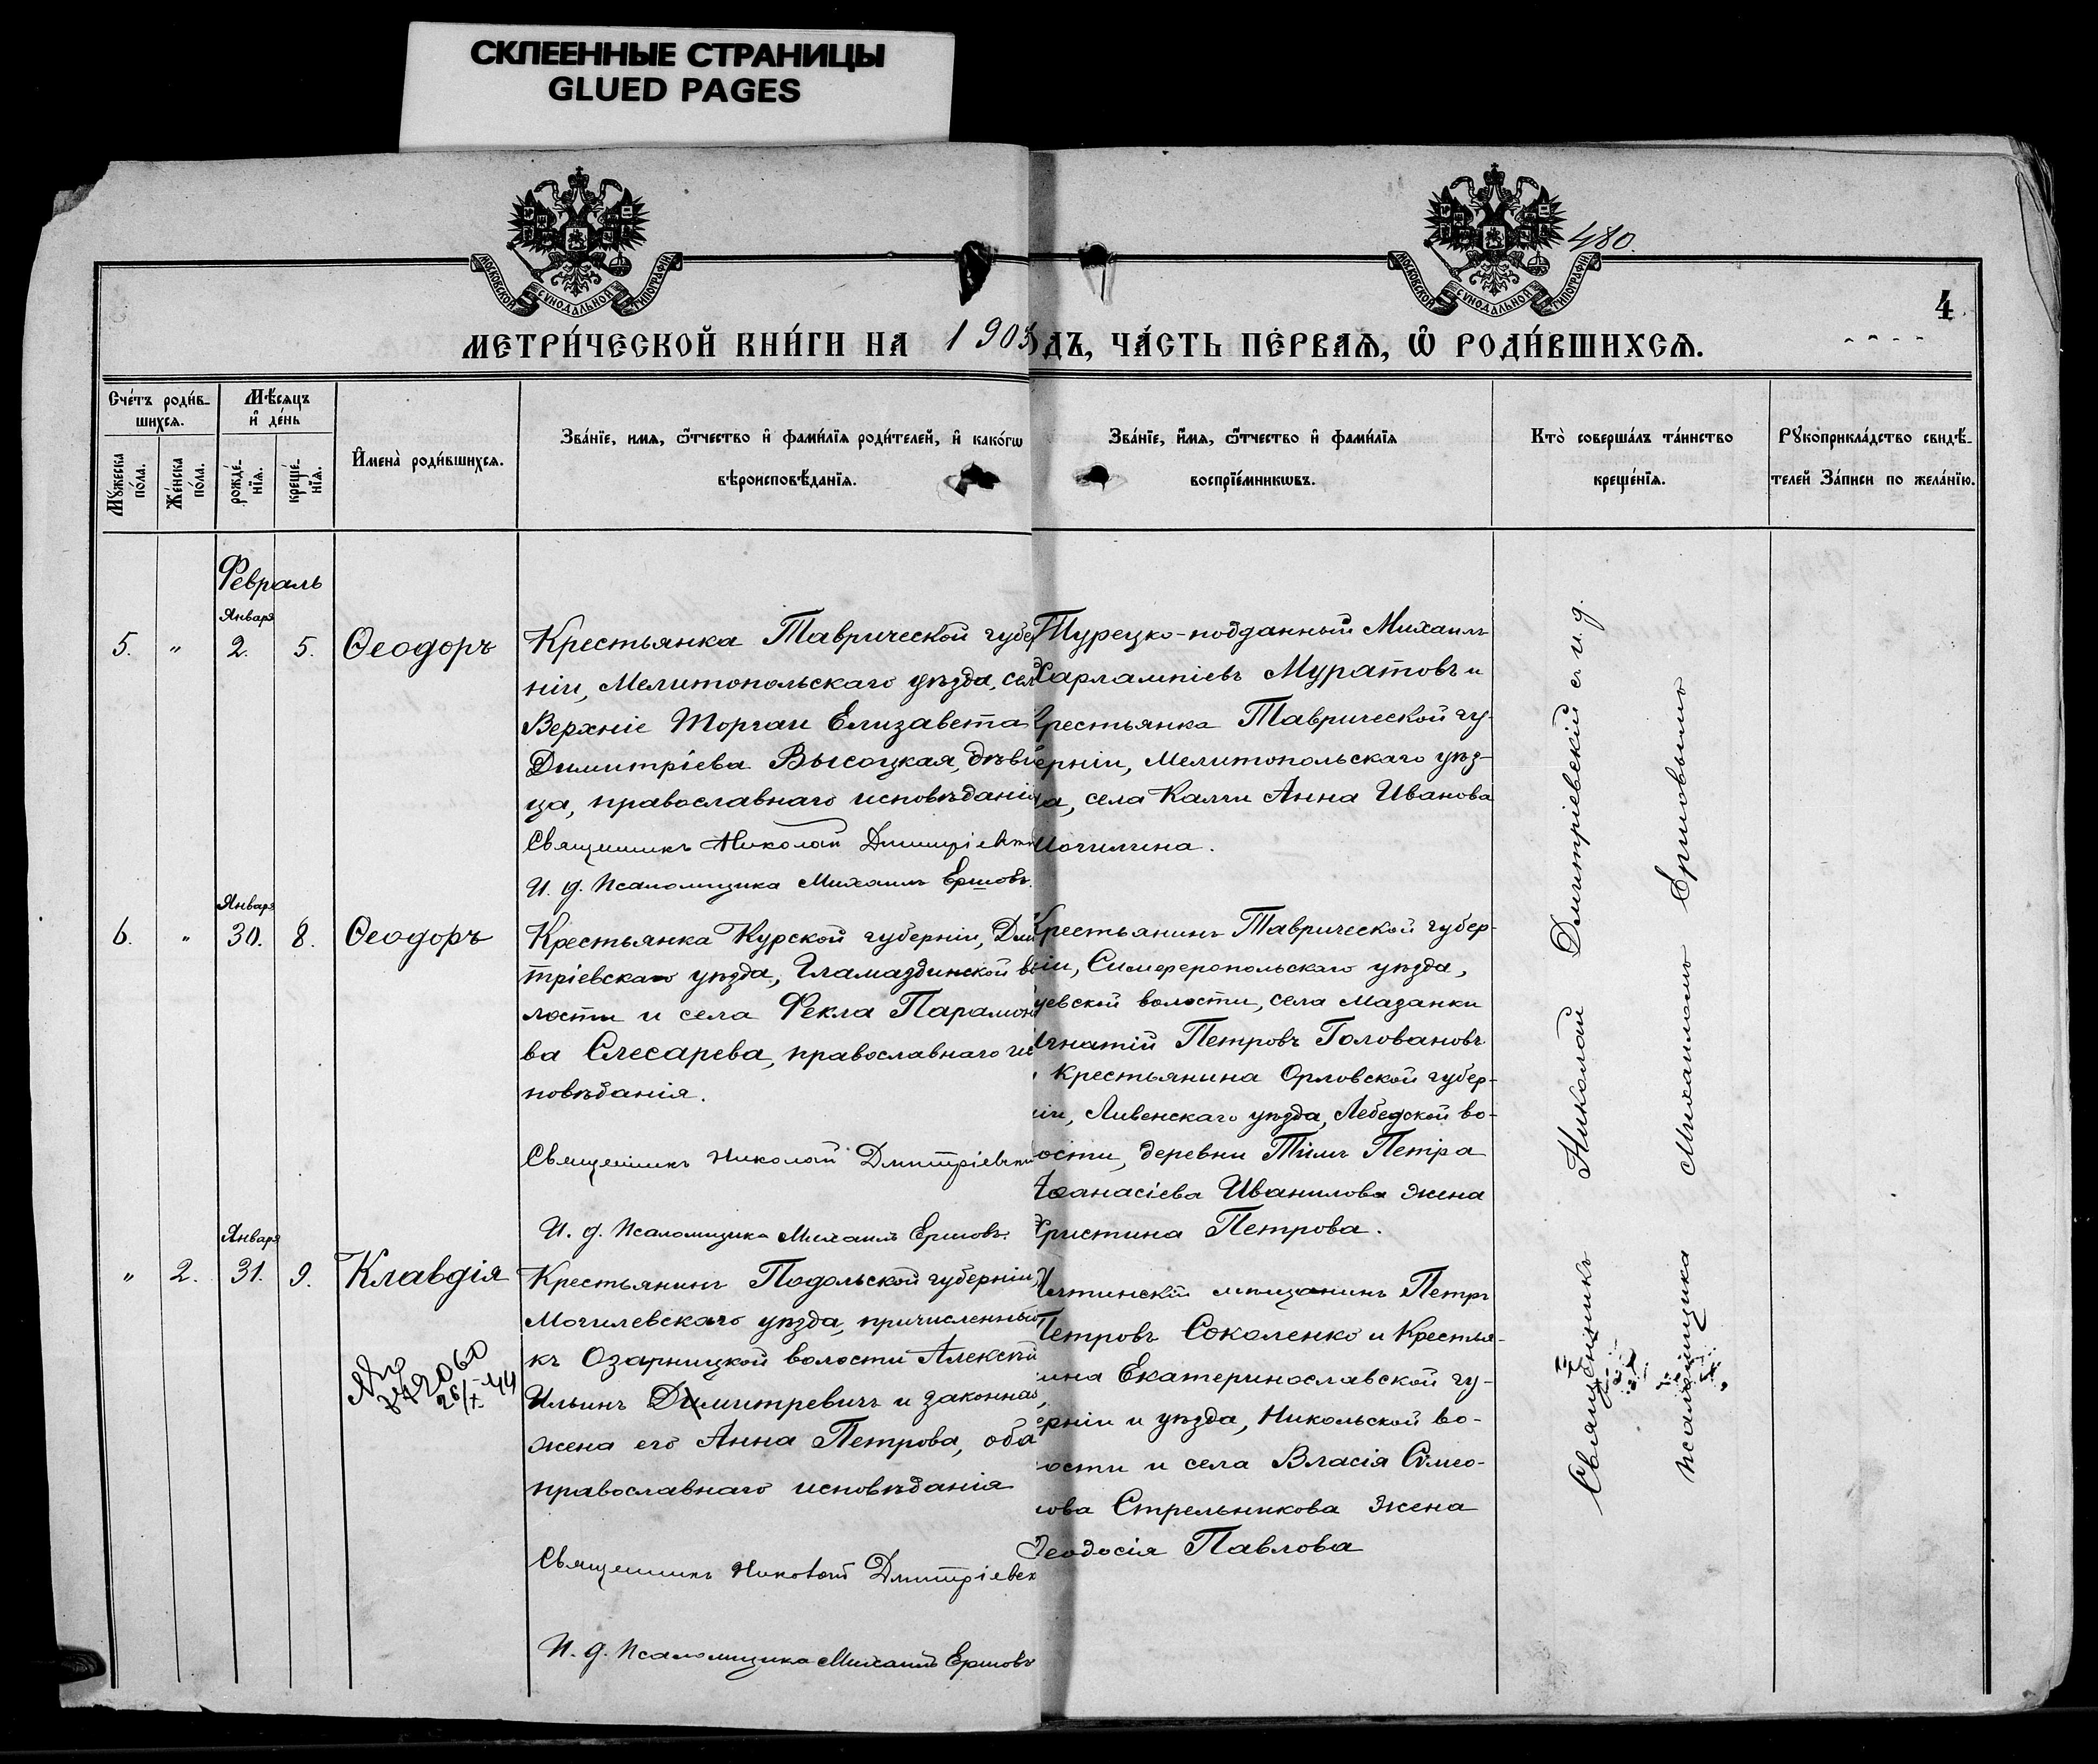 СКЛЕЕННЫЕ СТРАНИЦЫ
GLUED PAGES
МОСКОВСКОЙ СѴНОДАЛЬНОЙ ТИПОГРАФІИ
МОСКОВСКОЙ СѴНОДАЛЬНОЙ ТИПОГРАФІИ
480.
4
МЕТРИ́ЧЕСКОЙ КНИ́ГИ НА 1903
ДЪ, ЧА́СТЬ ПЕ́РВАѦ, Ѡ РОДИ́ВШИХСѦ.
Сче́тъ роди́в-
шихсѧ.
Мꙋжеска по́ла.
Же́нска по́ла.
Мѣ́сѧцъ
и҆ де́нь
рожде́-
нїѧ.
креще́-
нїѧ.
И҆мена̀ роди́вшихсѧ.
Зва́нїе, имѧ, ѿтчество и҆ фами́лїѧ роди́телей, и҆ како́гѡ
вѣроисповѣ́данїѧ.
Зва́нїе, и҆мѧ, ѿтчество и҆ фами́лїѧ
воспрїе́мникѡвъ.
Кто̀ соверша́лъ та́инство
креще́нїѧ.
Рꙋкоприкла́дство свидѣ́-
телей За́писи по жела́нїю.
Февраль
Января
5. " 2. 5. Ѳеодоръ
Крестьянка Таврической губе
ніи, Мелитопольскаго уѣзда, сел
Верхніе Торгаи Елизавета
Димитріева Высоцкая, дѣви
ца, православнаго исповѣдані
Священникъ Николай Дмитріевскі
И. д. Псаломщика Михаилъ Ершовъ.
Турецко-подданный Михаилъ
Харлампіевъ Муратовъ и
Крестьянка Таврической гу-
ерніи, Мелитопольскаго уѣз-
да, села Калги Анна Иванова
Могилина.
Января
6. " 30. 8. Ѳеодоръ
Крестьянка Курской губерніи, Дми
тріевскаго уѣзда, Гламаздинской во
лости и села Фекла Парамоно
ва Слесарева, православнаго ис
повѣданія.
Священникъ Николай Дмитріевскі
И. д. Псаломщика Михаилъ Ершовъ.
Крестьянинъ Таврической губер-
ніи, Симферопольскаго уѣзда,
уевской волости, села Мазанки
Игнатій Петровъ Головановъ
Крестьянина Орловской губер-
ніи, Ливенскаго уѣзда, Лебедской во-
ости, деревни Тимъ Петра
Аѳанасіева Иванилова жена
Христина Петрова.
Января
" 2. 31. 9. Клавдія
2060
26/X-44
Крестьянинъ Подольской губерніи,
Могилевскаго уѣзда, причисленный
къ Озарницкой волости Алексѣй
Ильинъ Димитревичъ и законная
жена его Анна Петрова, оба
православнаго исповѣданія
Священникъ Николай Дмитріевск
И. д. Псаломщика Михаилъ Ершовъ
Ялтинскій мѣщанинъ Петръ
Петровъ Соколенко и Крестья-
нина Екатеринославской гу-
ерніи и уѣзда, Никольской во-
ости и села Власія Симео-
нова Стрельникова жена
Ѳеодосія Павлова
Священникъ Николай Дмитріевскій съ и. д.
псаломщика Михаиломъ Ершовымъ